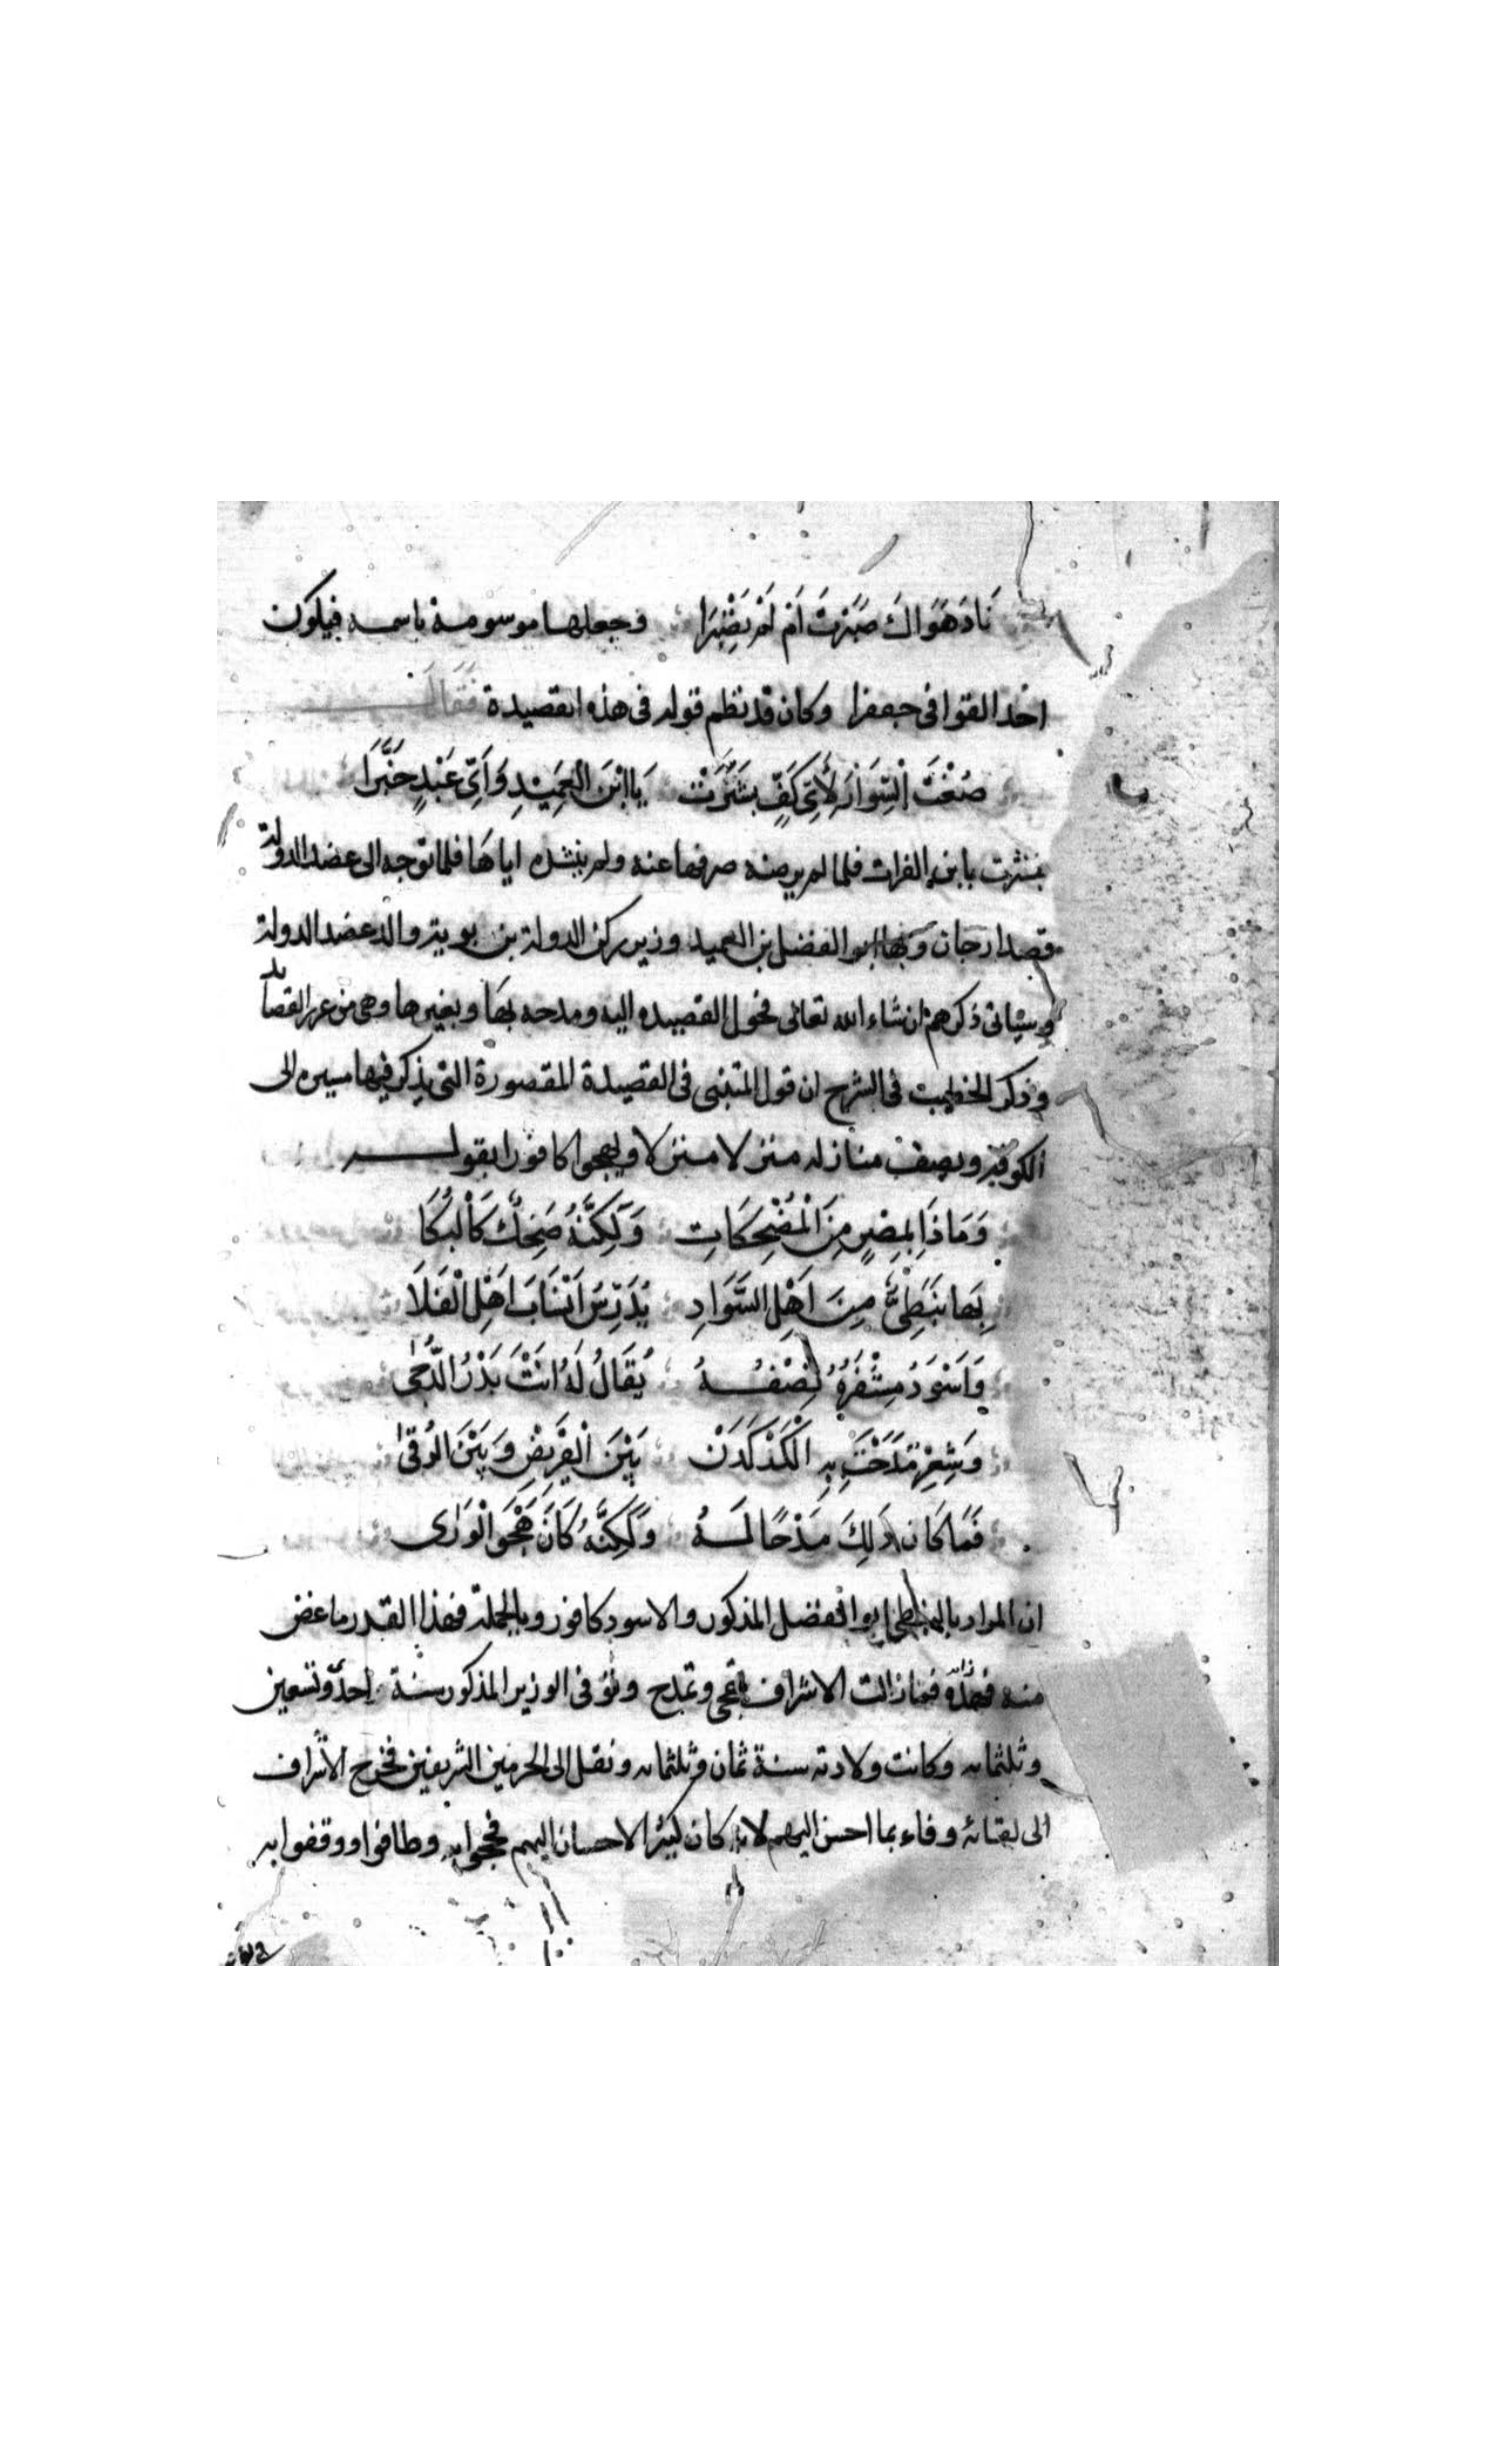 نَادَ هَوَاكَ صَبَرْتَ اَمْ لَمْ تَصْبِرَا وجعلها موسومة باسمه فيكون
احد القوافى جعفرا وكان قد نظم قوله فى هذه القصيدة فَقَالَ
صُغْتُ السِّوَارَ لِأَىِّ كَفٍّ بَشَّرَتْ يَا ابْنَ الْعَمِيْدِ وَاَىِّ عَبْدٍ خَبَّرَا
بشرت بابن الفرات فلما لم يرضه صرفها عنه ولم ينشده اياها فلما توجه الى عضد الدولة
قصد ارجان وَبها ابو الفضل بن العميد وزير ركن الدولة بن بويه والد عضد الدولة
وسياتى ذكرهم ان شاء الله تعالى فحول القصيده اليه ومدحه بها وبغيرها وهى من غرر القصايد
وذكر الخطيب فى الشرح ان قول المتنبى فى القصيدة المقصورة التى يذكر فيها مسيره الى
الكوفة ويصف منازله منزلا منزلا ويهجوا كافورا بقوله
وَمَاذَا بِمِصْرٍ مِنَ الْمُضْحِكَاتِ وَلَكِنَّهُ ضَحِكٌ كَالْبُكَا
بِهَا نَبَطِىٌّ مِنَ اَهْلِ السَّوَادِ يُدَرِّسُ اَنْسَابَ اَهْلِ الْفَلَا
وَاَسْوَدُ مِشْفَرُهُ نِصْفُهُ يُقَالُ لَهُ اَنْتَ بَدْرُ الدُّجَى
وَشِعْرٍ مَدَحْتُ بِهِ الْكَرْكَدَنْ بَيْنَ الْقَرِيْضِ وَبَيْنَ الرُّقَى
فَمَا كَانَ ذَلِكَ مَدْحًا لَهُ وَلَكِنَّهُ كَانَ هَجْوَ الْوَرَى
ان المراد بالنبطى ابو الفضل المذكور والاسود كافور وبالجملة فهذا القدر ما غض
منه فما زالت الاشراف تهجى وتمدح وتوفى الوزير المذكور سنة احدى وتسعين
وثلثمايه وكانت ولادته سنة ثمان وثلثمايه ونقل الى الحرمين الشريفين فخرج الاشراف
الى لقائه وفاء بما احسن اليهم لانه كان كثير الاحسان اليهم فحجوا به وطافوا ووقفوا به